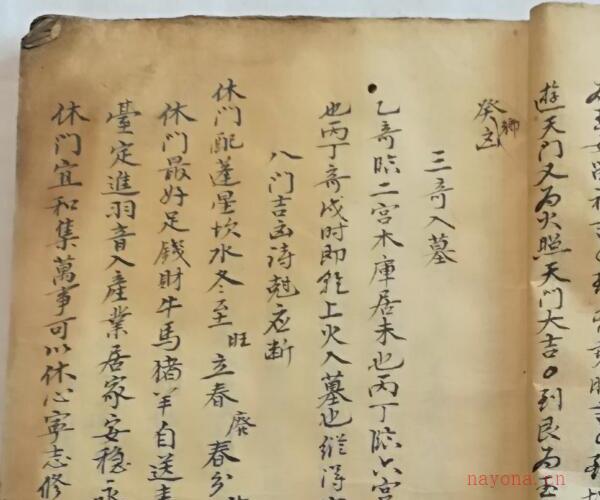 遊天門又為火照天門大吉〇到艮為玉
癸鄉凶
三奇入墓
乙奇臨二宮木庫居未也丙丁臨六宮
也丙丁奇戌时即乾上火入墓也縱得
八门吉凶诗尅应断
休门配蓬星坎水冬至旺立春廢春分
休门最好足錢財牛馬猪羊自送
臺定進羽音入產業居家安穩永
休门宜和集萬事可以休心寧志修
nayona.cn